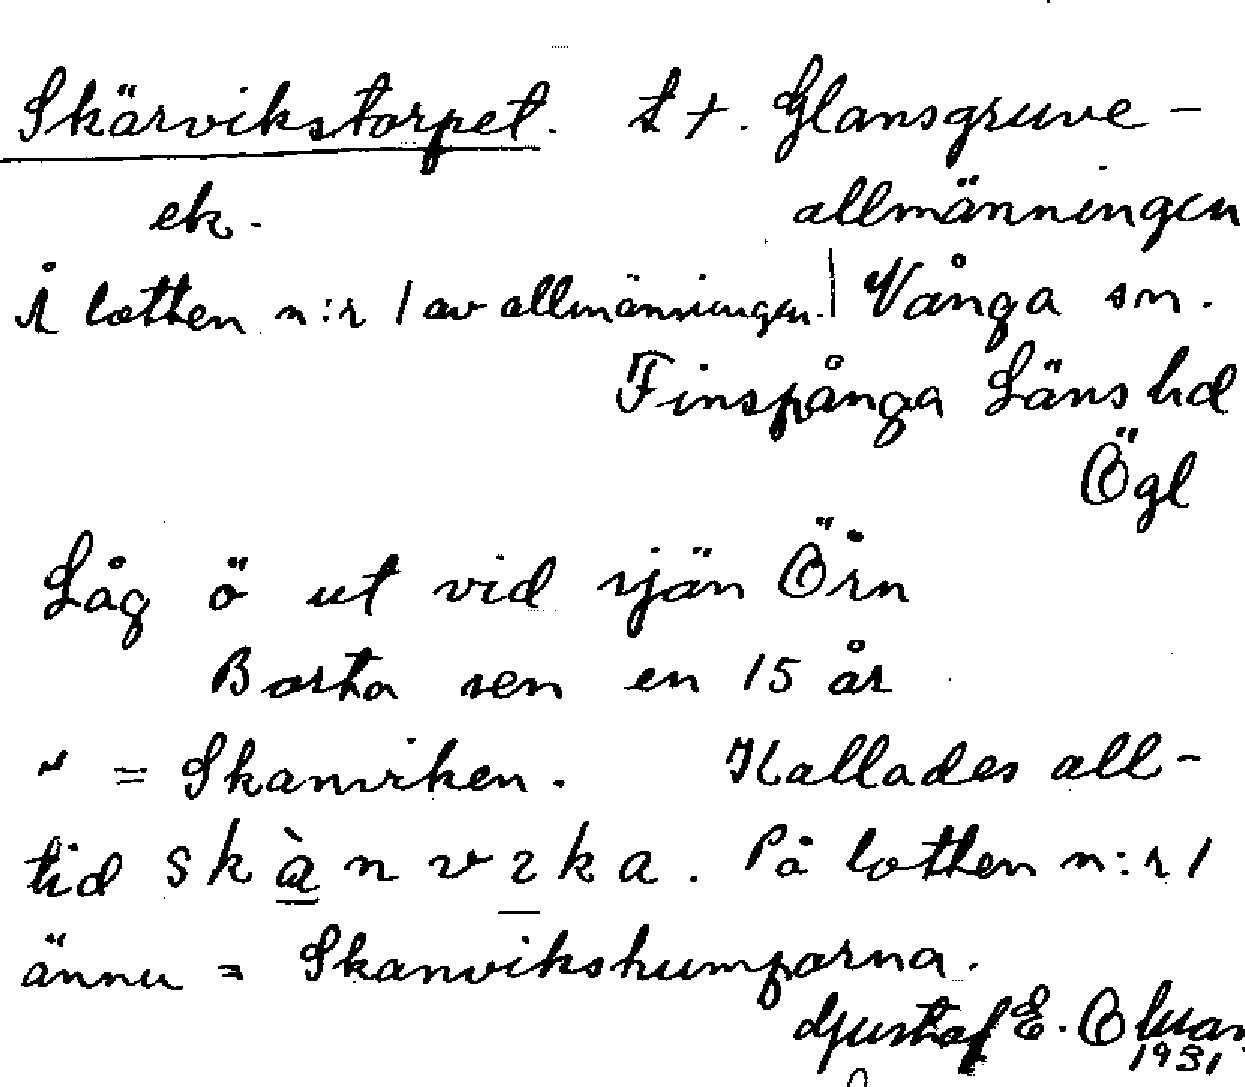 Skärvikstorpet. t +. Glansgruve-
ek. allmänningen
Å lotten n:r 1 av allmänningen. | Vånga sn.
Finspånga Läns hd
Ögl
Låg ö ut vid sjön Örn
Borta sen en 15 år
" = Skanviken. Kallades all-
tid skànvıka. På lotten n:r 1
ännu = Skanvikshumparna.
Gustaf E.
1931